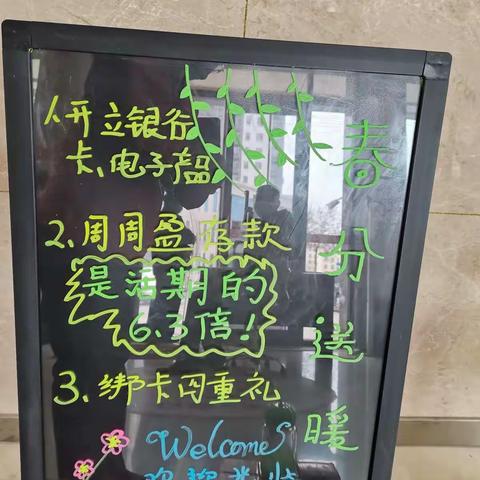 1.开立银行
卡、电子产品
2.周周盈存款
是活期的
6.3倍!
3.绑卡四重礼
Welcome
春分送暖